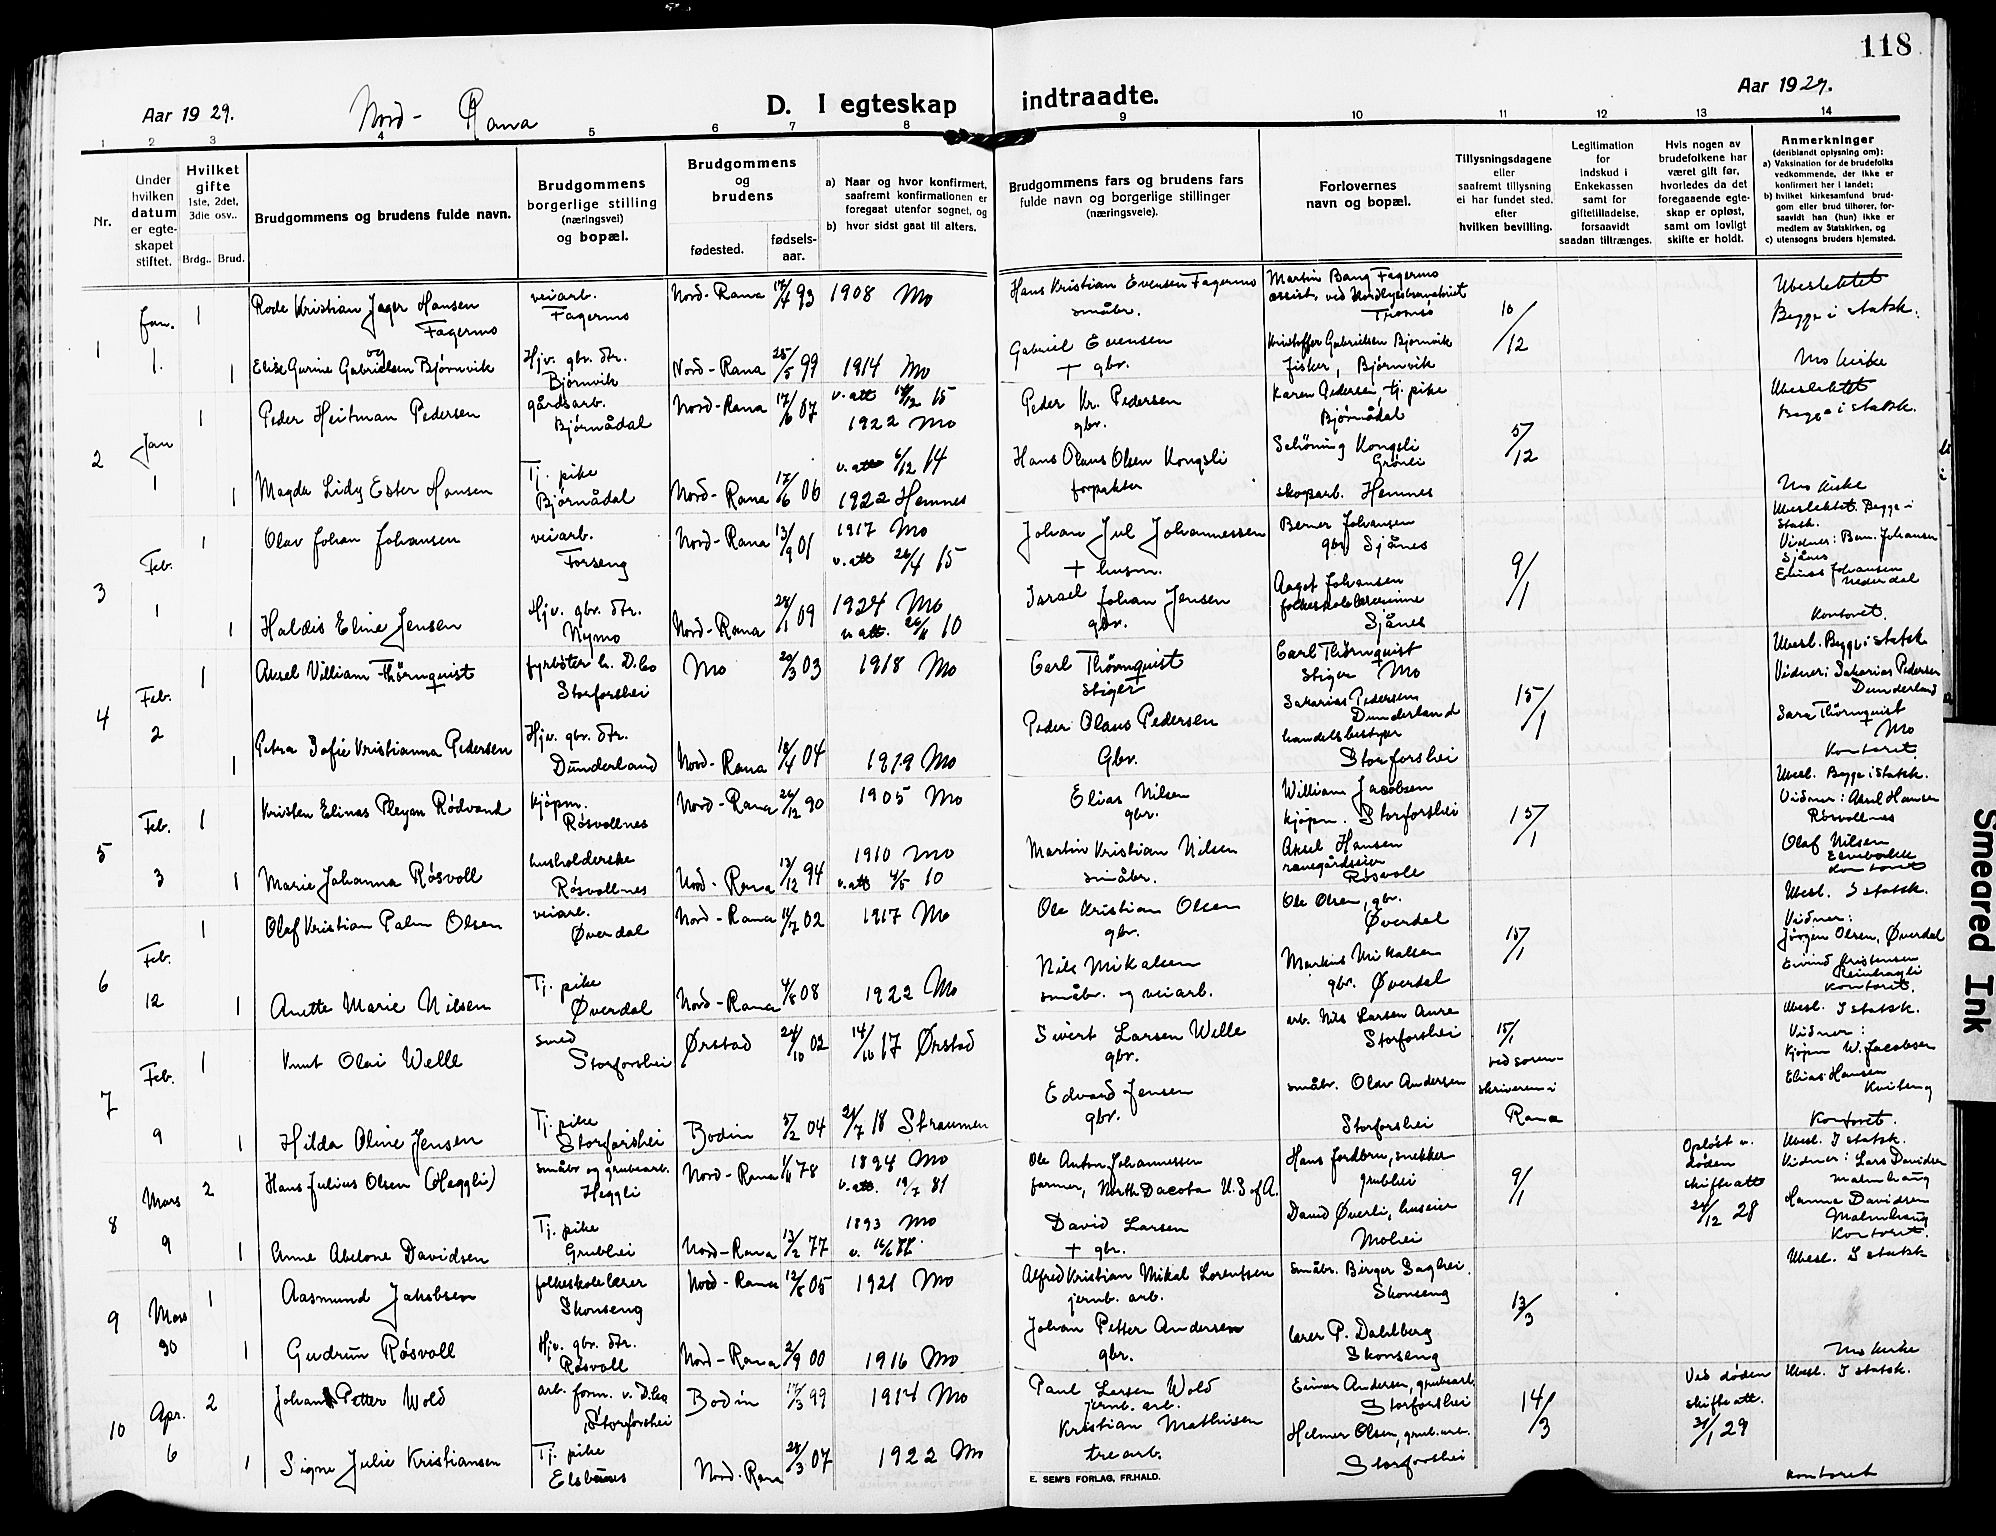 118
Aar 1929.
Nord-Rana
D. I egteskap indtraadte.
Aar 1929.
1 2 3 4 5 6 7 8 9 10 11 12 13 14
Nr.
Under hvilken datum er egteskapet stiftet.
Hvilket gifte 1ste, 2det, 3die osv..
Brdg..
Brud.
Brudgommens og brudens fulde navn.
Brudgommens borgerlige stilling (næringsvei) og bopæl.
Brudgommens og brudens
fødested.
fødselsaar.
a) Naar og hvor konfirmert, saafremt konfirmationen er foregaat utenfor sognet, og
b) hvor sidst gaat til alters.
Brudgommens fars og brudens fars fulde navn og borgerlige stillinger (næringsveie).
Forlovernes navn og bopæl.
Tillysningsdagene eller saafremt tillysning ei har fundet sted, efter hvilken bevilling.
Legitimation for indskud i Enkekassen samt for giftetilladelse, forsaavidt saadan tiltrænges.
Hvis nogen av brudefolkene har været gift før, hvorledes da det foregaaende egteskap er opløst, samt om lovligt skifte er holdt.
Anmerkninger
(deriblandt oplysning om):
a) Vaksination for de brudefolks vedkommende, der ikke er konfirmert her i landet;
b) hvilket kirkesamfund brudgom eller brud tilhører, forsaavidt han (hun) ikke er medlem av Statskirken, og
c) utensogns bruders hjemsted.
1 Jan. 1. 1 Rode Kristian Jager Hansen Fagermo veiarb. Fagermo Nord-Rana 17/4 93 1908 Mo Hans Kristian Evensen Fagermo småbr. Martin Bang Fagermo assist. ved Nordlysobservatoriet Tromsø 10/12 Ubeslektet Begge i statsk.
og
1 Elise Gurine Gabrielsen Bjørnvik Hjv. gbr. dtr. Bjørnvik Nord-Rana 25/5 99 1914 Mo Gabriel Evensen + gbr. Kristoffer Gabrielsen Bjørnvik fisker, Bjørnvik Mo kirke
2 Jan 1 1 Peder Heitman Pedersen gårdsarb. Bjørnådal Nord-Rana 17/6 07 v. att 14/12 15 1922 Mo Peder Kr. Pedersen gbr. Karen Pedersen, tj. pike Bjørnådal 5/12 Ubeslektet Begge i statsk.
1 Magda Lidy Ester Hansen Tj. pike Bjørnådal Nord-Rana 17/6 06 v. att 6/12 14 1922 Hemnes Hans Olaus Olsen Kongsli forpakter Schöning Kongsli Grønli skogsarb. Hemnes Mo kirke
3 Feb. 1 1 Olav Johan Johansen veiarb. Forseng Nord-Rana 13/9 01 1917 Mo v. att 26/4 15 Johan Jul Johannessen + husm. Berner Johansen gbr Sjånes 9/1 Ubeslektet. Begge i Statsk. Vidner: Bern. Johansen Sjånes Elinas Johansen Nederdal
1 Haldis Eline Jensen Hjv. gbr. dtr. Nymo Nord-Rana 24/1 09 1924 Mo v. att. 26/11 10 Israel Johan Jensen gbr. Aagot Johansen folkeskolelærerinne Sjånes Kontoret.
4 Feb. 2 1 Aksel Villiam Thörnquist fyrbøter h. D. Co Storforshei Mo 20/3 03 1918 Mo Carl Thörnquist Stiger Carl Thörnquist Stiger Mo 15/1 Ubesl. Begge i statsk Vidner: Sakarias Pedersen Dunderland
1 Petra Sofie Kristianna Pedersen Hjv. gbr. dtr. Dunderland Nord-Rana 18/4 04 1919 Mo Peder Olaus Pedersen Gbr. Sakarias Pedersen Dunderland handelsbestyrer Storforshei Sara Thörnquist Mo Kontoret
5 Feb. 3 1 Kristen Elinas Pleym Rödvand kjøpm. Røsvollnes Nord-Rana 26/12 90 1905 Mo Elias Nilsen gbr. William Jacobsen kjøpm. Storforshei 15/1 Ubesl. Begge i statsk. Vidner: Aksel Hansen Røsvollnes
1 Marie Johanna Røsvoll husholderske Røsvollnes Nord-Rana 13/12 94 1910 Mo v. att 4/5 10 Martin Kristian Nilsen småbr. Aksel Hansen Røsvoll Olaf Nilsen Kontoret
6 Feb. 12 1 Olaf Kristian Palm Olsen veiarb. Øverdal Nord-Rana 11/7 02 1917 Mo Ole Kristian Olsen gbr. Ole Olsen, gbr. Øverdal 15/1 Ubesl. I statsk. Vidner: Jörgen Olsen, Øverdal
1 Anette Marie Nilsen Tj. pike Øverdal Nord-Rana 4/8 08 1922 Mo Nils Mikalsen småbr. og veiarb. Markus Mikalsen gbr. Øverdal Eivind Kristensen Reinhagli Kontoret.
7 Feb. 9 1 Knut Olai Welle smed Storforshei Ørstad 24/10 02 14/10 17 Ørstad Sivert Larsen Welle gbr. arb. Nils Larsen Aure Storforshei 15/1 ved sorenskriveren i Rana Ubesl. I statsk. Vidner: kjøpm W. Jacobsen Elias Hansen
1 Hilda Oline Jensen Tj. pike Storforshei Bodin 5/2 04 21/7 18 Straumen Edvard Jensen gbr. småbr. Olav Andersen Storforshei Kontoret.
8 Mars 9 2 Hans Julius Olsen (Heggli) småbr og grubearb. Heggli Nord-Rana 1/11 78 1894 Mo v. att. 19/7 81 Ole Anton Johannessen farmer, North Dacota U.S of A. Hans Jordbru, snekker grubhei 9/1 Opløst v. døden skifteatt 28/12 28 Ubesl. I statsk. Vidner: Lars Davidsen Malmhaug
1 Anne Abelone Davidsen Tj. pike Grubhei Nord-Rana 13/2 77 1893 Mo David Larsen + gbr. David Øverli, huseier Mohei Hanna Davidsen Malmhaug Kontoret.
9 Mars 30 1 Aasmund Jakobsen folkeskolelærer Skonseng Nord-Rana 12/5 05 1921 Mo Alfred Kristian Mikal Lorentsen jernb. arb. småbr. Birger Saghei. Skonseng 13/3 Ubesl. I statsk
1 Gudrun Røsvoll Hjv. gbr. dtr. Røsvoll Nord-Rana 2/9 00 1916 Mo Johan Petter Andersen gbr. lærer P. Dahlberg Skonseng Mo kirke
10 Apr. 6 2 Johan Petter Wold arb. form. v. D. Co Storforshei Bodin 17/3 99 1914 Mo Paul Larsen Wold jernb. arb. Einar Andersen, grubearb. Storforshei 14/3 Ved døden skifteatt. 31/1 29 Ubesl. I statsk.
1 Signe Julie Kristiansen Tj. pike Nord-Rana 28/3 07 1922 Mo Kristian Mathisen trearb. Helmer Olsen, grub. arb. Storforshei kontoret
E. SEM'S FORLAG, FR.HALD.
Smeared Ink